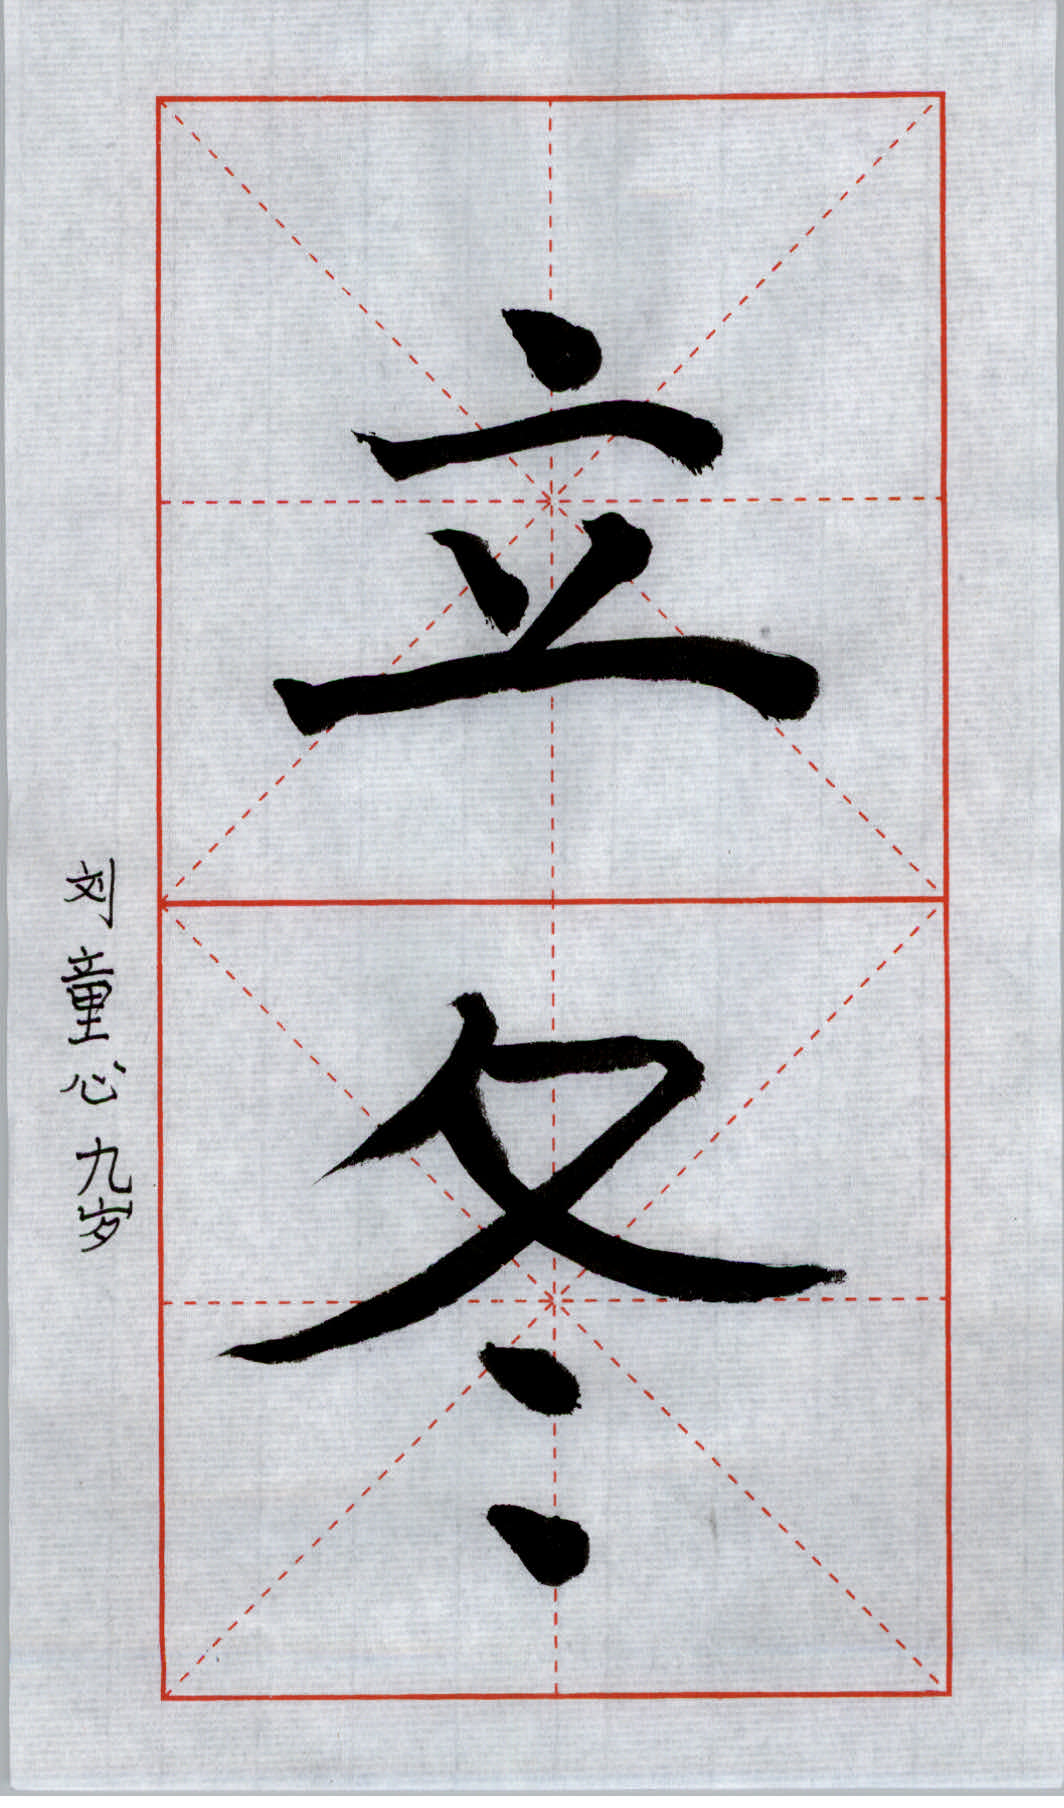 立冬
刘童心九岁